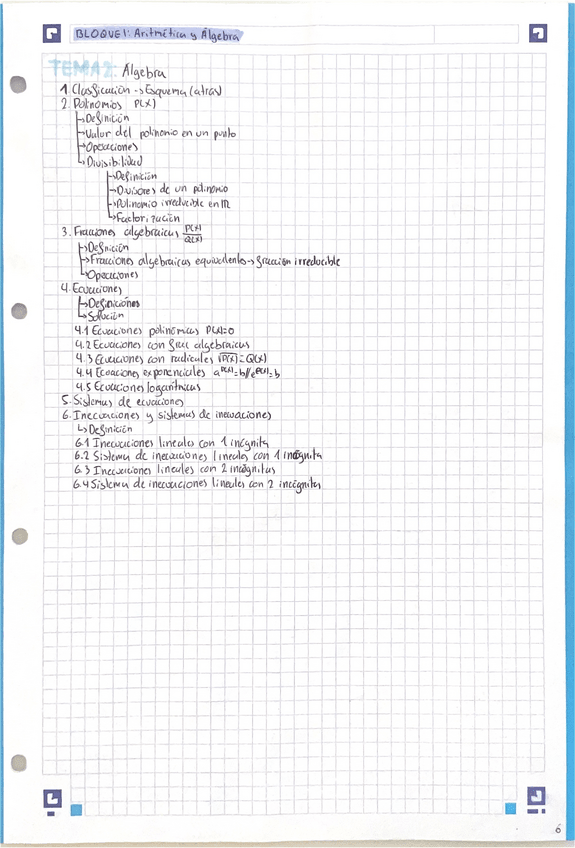 BLOQUE 1: Aritmética y Álgebra
TEMA 2: Álgebra
1 Clasificación → Esquema (atrás)
2. Polinomios P(x)
→ Definición
→ Valor del polinomio en un punto
→ Operaciones
→ Divisibilidad
→ Definición
→ Divisores de un polinomio
→ Polinomio irreducible en ℝ
→ Factorización
3. Fracciones algebraicas P(x)/Q(x)
→ Definición
→ Fracciones algebraicas equivalentes → fracción irreducible
→ Operaciones
4. Ecuaciones
→ Definiciones
→ Solución
4.1 Ecuaciones polinómicas P(x)=0
4.2 Ecuaciones con fracc algebraicas
4.3 Ecuaciones con radicales √P(x) = Q(x)
4.4 Ecuaciones exponenciales a^P(x)=b // e^P(x)=b
4.5 Ecuaciones logarítmicas
5. Sistemas de ecuaciones
6. Inecuaciones y sistemas de inecuaciones
↳ Definición
6.1 Inecuaciones lineales con 1 incógnita
6.2 Sistema de inecuaciones lineales con 1 incógnita
6.3 Inecuaciones lineales con 2 incógnitas
6.4 Sistema de inecuaciones lineales con 2 incógnitas
6